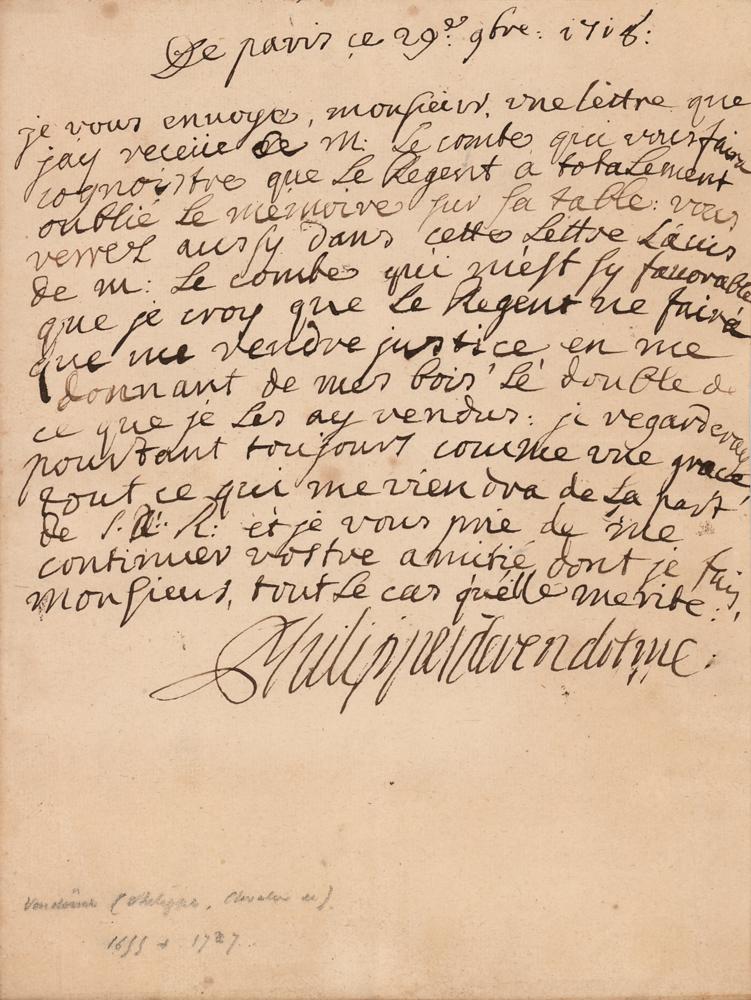 De paris ce 29e: 9bre: 1718:
je vous envoye, monsieur, vne lettre que
jay receüe de m: Le combe qui vous faira
cognoistre que Le Regent a totaLement
oublié Le memoire sur sa table: vous
verrez aussy dans cette Lettre Lauis
de m: Le combe qui m'est sy fauorable
que je croy que Le Regent ne faira
que me rendre justice en me
donnant de mes bois Le double de
ce que je Les ay vendus: je regarderay
pourtant toujours comme vne grace
tout ce qui me viendra de La part
de S. A. R: et je vous prie de me
continuer vostre amitié dont je fais,
Monsieur, tout Le cas qu'elle merite:
Philippe de vendosme:
Vendôme (Philippe, Chevalier de)
1655 + 1727